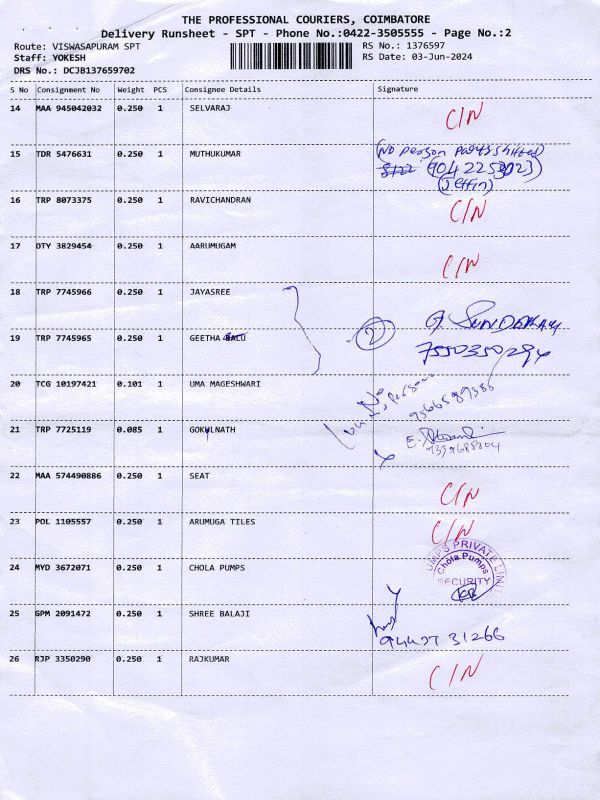 THE PROFESSIONAL COURIERS, COIMBATORE
Delivery Runsheet - SPT - Phone No.:0422-3505555 - Page No.:2
Route: VISWASAPURAM SPT RS No.: 1376597
Staff: YOKESH RS Date: 03-Jun-2024
DRS No.: DCJB137659702
S No Consignment No Weight PCS Consignee Details Signature
14 MAA 945042032 0.250 1 SELVARAJ C/N
15 TDR 5476631 0.250 1 MUTHUKUMAR (NO person party shifted)
16 TRP 8073375 0.250 1 RAVICHANDRAN C/N
17 OTY 3829454 0.250 1 AARUMUGAM C/N
18 TRP 7745966 0.250 1 JAYASREE
19 TRP 7745965 0.250 1 GEETHA BALU 2 7550350294
20 TCG 10197421 0.101 1 UMA MAGESHWARI No person
21 TRP 7725119 0.085 1 GOKULNATH
22 MAA 574490886 0.250 1 SEAT C/N
23 POL 1105557 0.250 1 ARUMUGA TILES C/N
24 MYD 3672071 0.250 1 CHOLA PUMPS Chola Pumps SECURITY
25 GPM 2091472 0.250 1 SHREE BALAJI
26 RJP 3350290 0.250 1 RAJKUMAR C/N